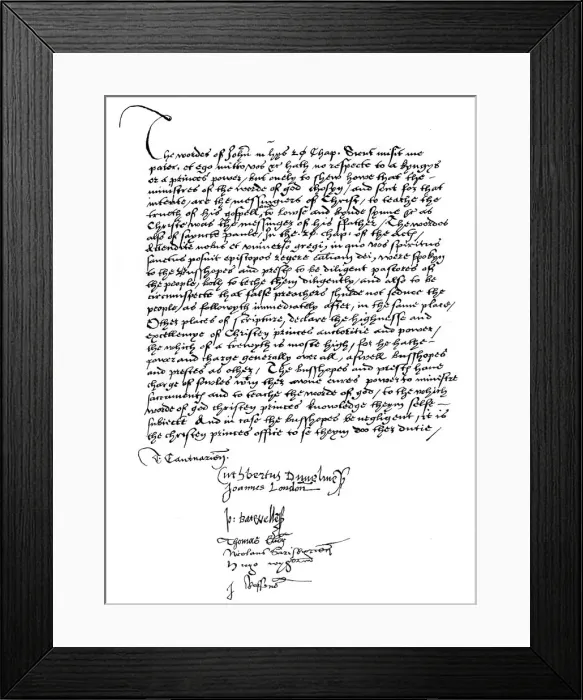 The wordes of John in hys 20 Chap. Sicut misit me
pater, et ego mitto vos &c hath no respecte to a kyngys
or a princes power, but onely to shew howe that the
ministres of the worde of god chosyn, and sent for that
intente, are the messengiers of Christ, to teache the
trueth of his gospell, to loose and bynde synne &c as
Christe was the messinger of his father, The wordes
also of saynete paule, in the 20 chap. of the Actes,
Attendite vobis et universo gregi, in quo vos spiritus
sanctus posuit episcopos regere ecclesiam dei, were spokyn
to the Busshopes and prestes to be diligent pastores of
the people, both to teche them diligently, and also to be
circumspecte that false preachers shulde not seduce the
people, as followyth immediately after, in the same place,
Other places of scripture, declare the highnesse and
excellencye of Christen princes auctoritie and power,
the which of a trewyth is moste high, for he hathe
power and charge generally over all, aswell Busshopes
and prestes as other, The busshopes and prestes have
charge of sowles within their awne cures power to ministre
sacramentes and to teache the worde of god, to the which
worde of god christen princes knowledge theym selfe
subiect And in case the busshopes be negligent, it is
the christen princes office to se theym doo ther dutie,
T. Cantuarien.
Cuthbertus Dunelmen
Joannes London
Jo: batwelle
Thomas Elien
Nicolaus Sarisburien
hugo wygorn
J Roffens